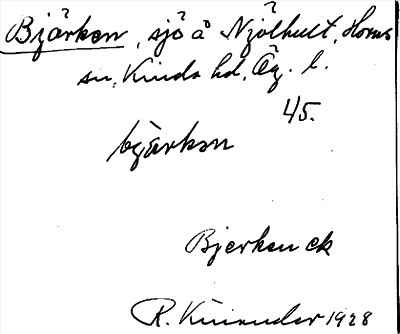 Bjärken, sjö å Njölhult, Horns
sn, Kinda hd, Ög. l.
45.
bjärkən
Bjerken ek
R. Kinander 1928